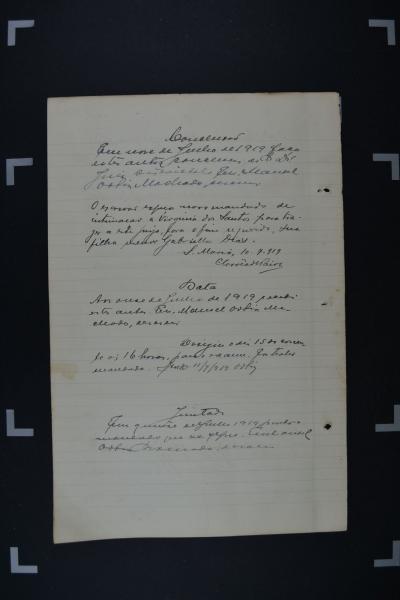 Conclusão
Em nove de Julho de 1919 faço
estes autos conclusos ao D. Dr.
Juiz Eu, Manoel
Machado, escrivão
O escrivão expeça novo mandado de
intimação a Virginia dos Santos para tra-
zer a este juizo, para o fim requerido, sua
filha menor Gabriella Dias.
S. Maria, 10-7-919
Data
Aos onze de Julho de 1919 recebi
estes autos. Eu, Manoel Ma-
chado, escrivão
Designo o dia 15 do corren-
te as 16 horas, para o exame.
mandado. 11/7/919
Juntada
Em quinze de Julho 1919 junto o
mandado que se segue. Eu Manoel
Machado, escrivão